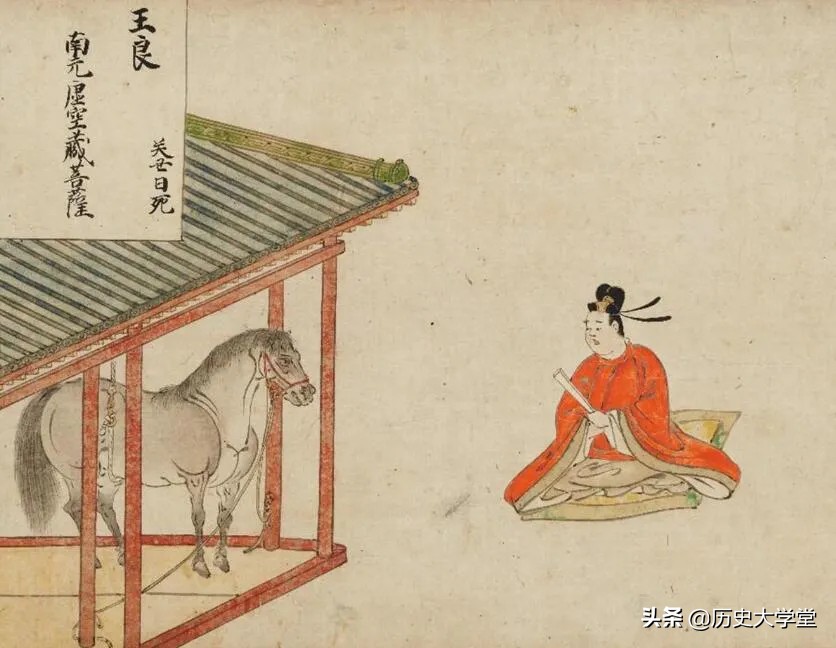 王良
日死
南无虚空藏菩薩
头条 @历史大学堂